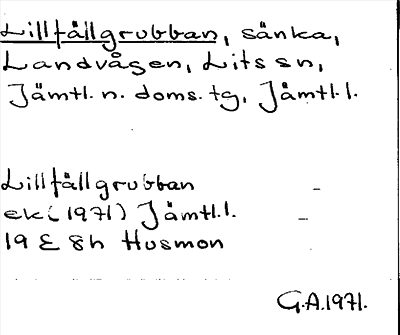 Lillfållgrubban, sänka,
Landvågen, Lits sn,
Jämtl. n. doms. tg, Jämtl. l.
Lillfållgrubban
ek (1971) Jämtl. l.
19 E 8h Husmon
G.A. 1971.